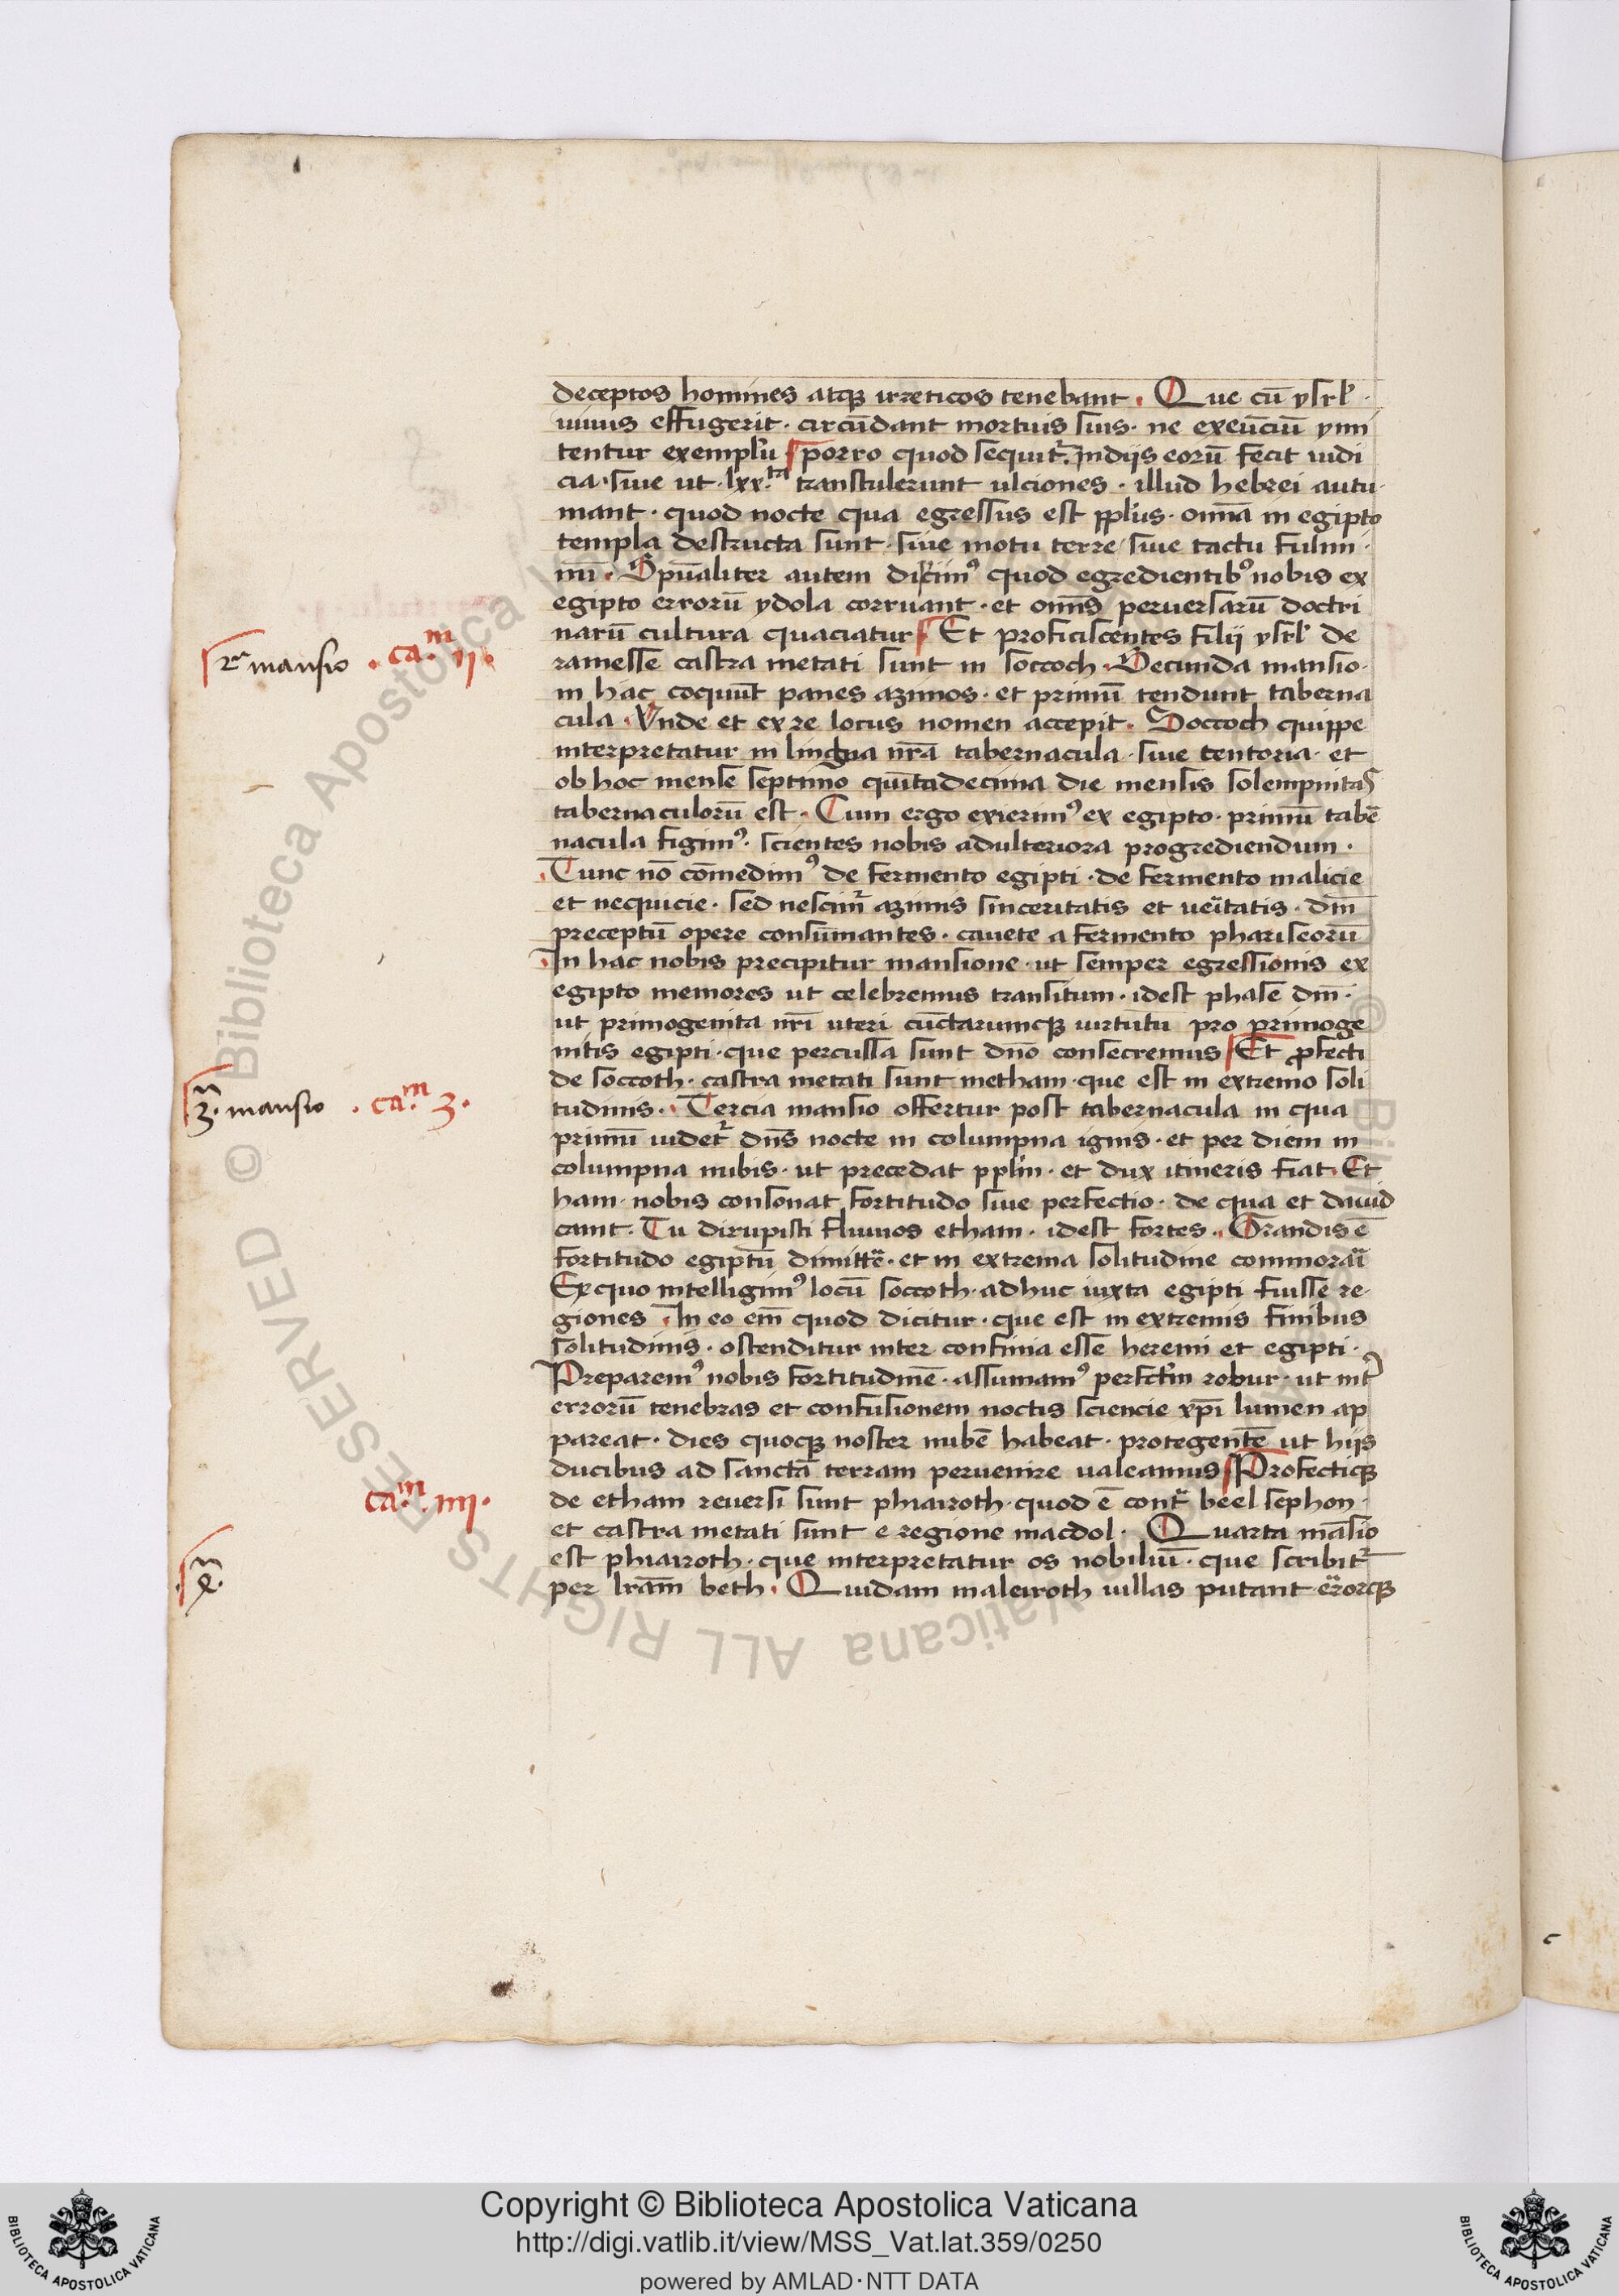 deceptos homines atqꝫ irreticos tenebant. Que cū ysrl̓.
uiuus effugerit. circūdant mortuis suis. ne exeūciū ymi
tentur exemplū porro quod sequit᷑. In diis eorū fecit iudi
cia. siue ut. lxx.ᵗᵃ transtulerunt ulciones. illud hebrei autu
mant. quod nocte qua egressus est pplus. om̄a in egipto
templa destructa sunt. siue motu terre / siue tactu fulmi
nū. Spūaliter autem dicim⁹ quod egredientib⁹ nobis ex
egipto errorū ydola corruant. et om̄s peruersarū doctri
narū cultura quaciatur Et proficiscentes filii ysrl̓ de
ramesse castra metati sunt in soccoch. Secunda mansio.
in hac coquūt panes azimos. et primū tendunt taberna
cula. Vnde et ex re locus nomen accepit. Soccoch quippe
interpretatur in lingua nr̄a tabernacula. siue tentoria. et
ob hoc mense septimo quītadecima die mensis solempnitas
tabernaculorū est. Cum ergo exierim⁹ ex egipto. primū tab̄e
nacula figim⁹. scientes nobis adulteriora progrediendum.
Tunc nō cōmedim⁹ de fermento egipti. de fermento malicie
et nequicie. sed uescim᷑ azimis sinceritatis et ueītatis. dm̄
preceptū opere consūmantes. cauete a fermento phariseorū
In hac nobis precipitur mansione. ut semper egressionis ex
egipto memores ut celebremus transitum. idest phase dm̄.
ut primogenita nr̄i uteri cūctarumqꝫ uirtutū pro primoge
nitis egipti. que percussa sunt dn̄o consecremus Et ꝓfecti
de soccoth. castra metati sunt in etham. que est in extremo soli
tudinis. Tercia mansio offertur post tabernacula in qua
primū uidet᷑ dn̄s nocte in columpna ignis. et per diem in
columpna nubis. ut precedat pplm̄. et dux itineris fiat. Et
ham. nobis consonat fortitudo siue perfectio. de qua et dauid
canit. Tu dirupisti fluuios etham. idest fortes. Grandis ē
fortitudo egiptū dimittē. et in extrema solitudine commoraī
Ex quo intelligim⁹ locū soccoth. adhuc iuxta egipti fuisse re
giones In eo em̄ quod dicitur. que est in extremis finibus
solitudinis. ostenditur inter confinia esse heremi et egipti.
Preparem⁹ nobis fortitudinē. assumam⁹ perfctm̄ robur. ut int̓
errorū tenebras et confusionem noctis sciencie xp̄i lumen ap
pareat. dies quoqꝫ noster nubē habeat. protegentē ut hiis
ducibus ad sanctā terram peruenire ualeamus Profectiqꝫ
de etham reuersi sunt phiairoth. quod ē cont᷑ beel sephon.
et castra metati sunt e regione macdol. Quarta māsio
est phiairoth. que interpretatur os nobiliū. que scribit᷑
per lr̄am beth. Quidam maleiroth uillas putant ēroreqꝫ
2ᵃ mansio . ca.ᵐ ii.
3. mansio . ca.ᵐ 3.
ca.ᵐ iiii.
Copyright © Biblioteca Apostolica Vaticana
http://digi.vatlib.it/view/MSS_Vat.lat.359/0250
powered by AMLAD·NTT DATA
BIBLIOTECA APOSTOLICA VATICANA
BIBLIOTECA APOSTOLICA VATICANA